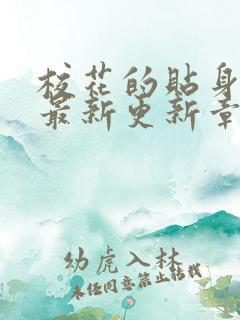 校花的贴身
最新更新章
幼虎入林
未经同意禁止转载